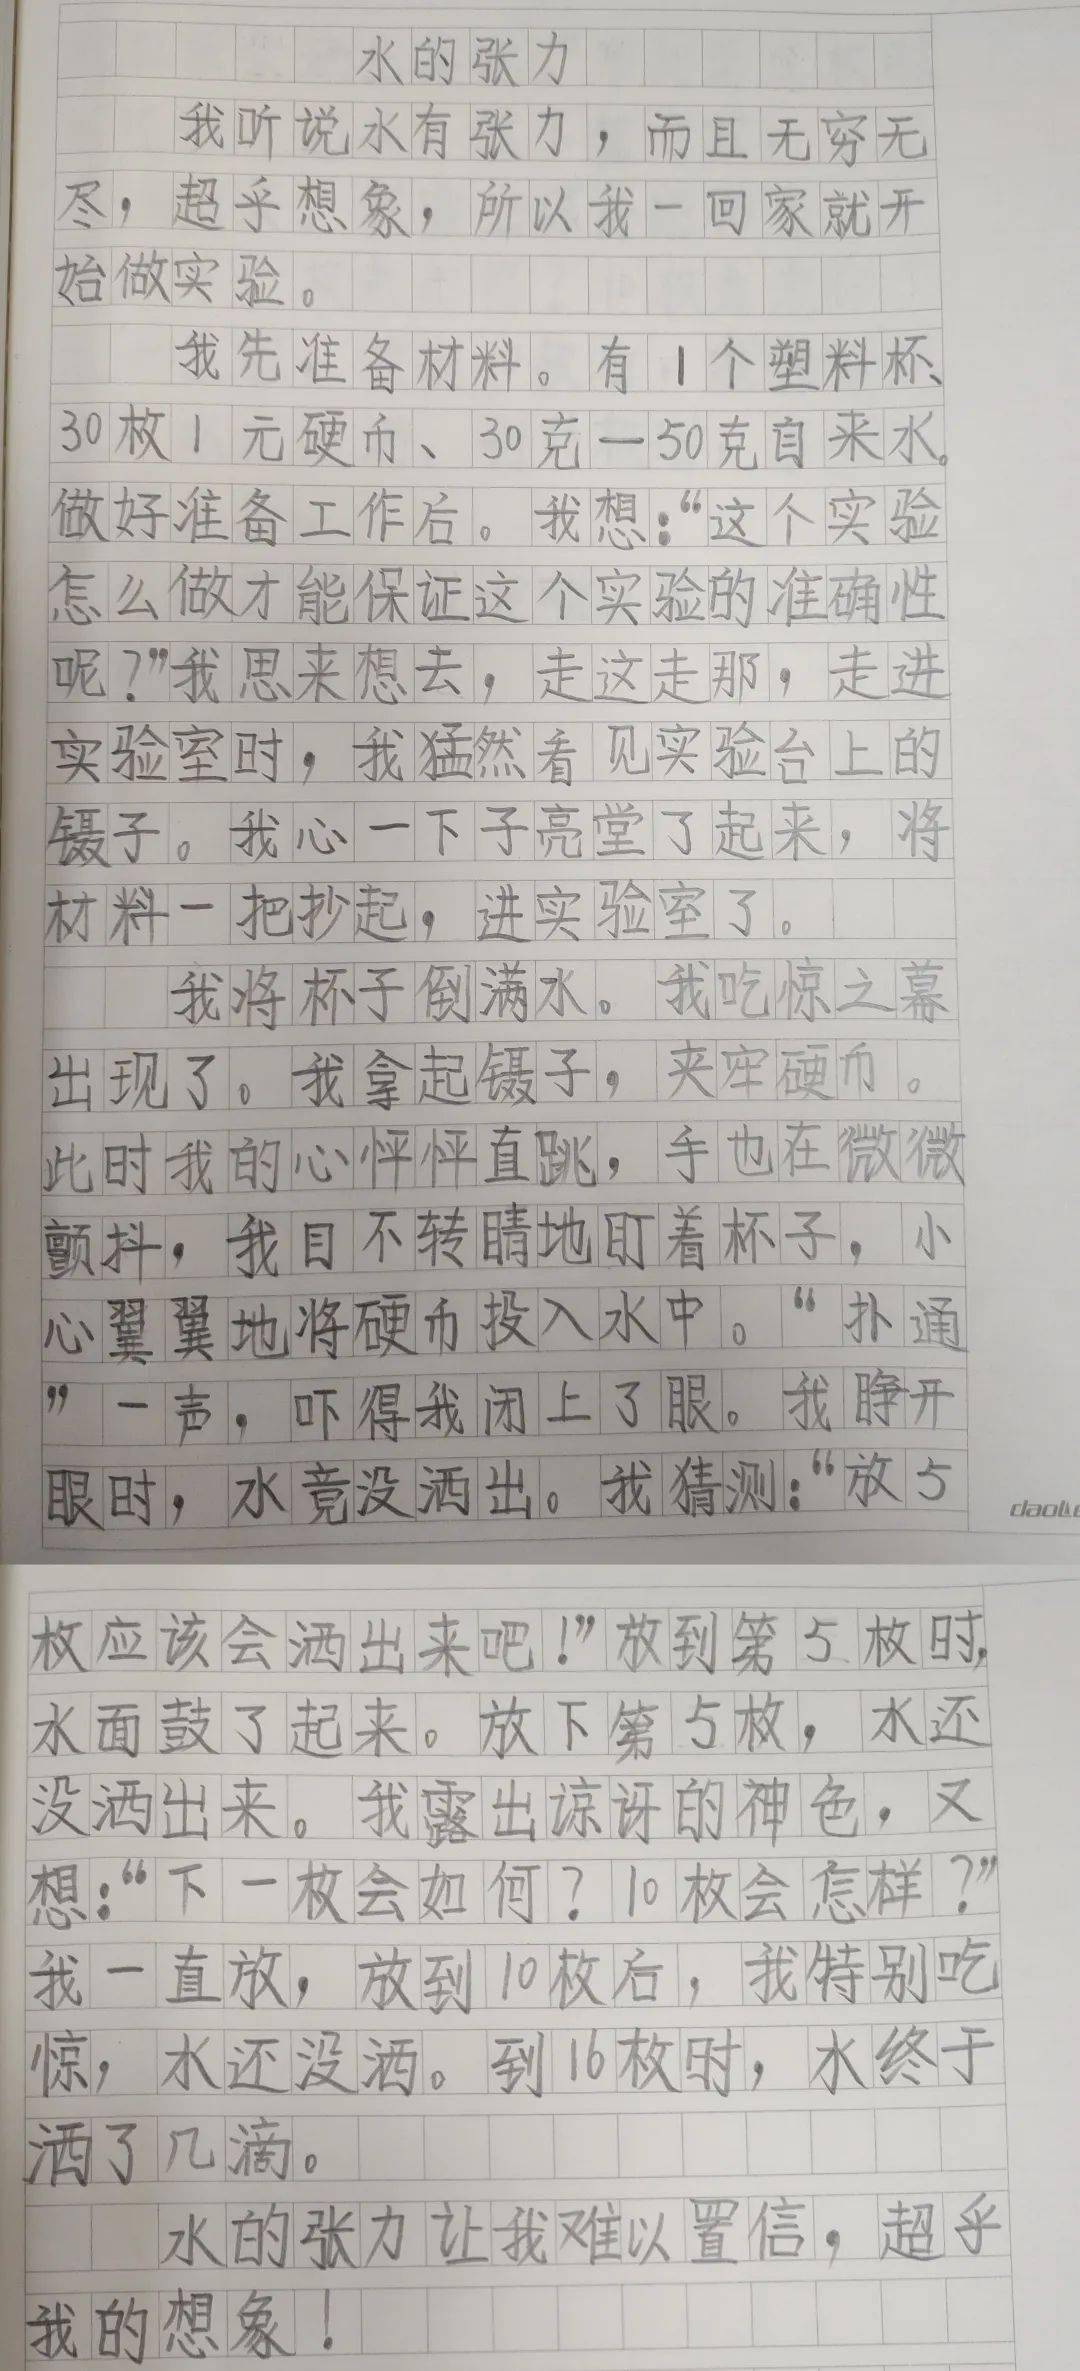 水的张力
我听说水有张力，而且无穷无
尽，超乎想象，所以我一回家就开
始做实验。
我先准备材料。有1个塑料杯、
30枚1元硬币、30克—50克自来水。
做好准备工作后。我想：“这个实验
怎么做才能保证这个实验的准确性
呢？”我思来想去，走这走那，走进
实验室时，我猛然看见实验台上的
镊子。我心一下子亮堂了起来，将
材料一把抄起，进实验室了。
我将杯子倒满水。我吃惊之幕
出现了。我拿起镊子，夹牢硬币。
此时我的心怦怦直跳，手也在微微
颤抖，我目不转睛地盯着杯子，小
心翼翼地将硬币投入水中。“扑通
”一声，吓得我闭上了眼。我睁开
眼时，水竟没洒出。我猜测：“放5
枚应该会洒出来吧！”放到第5枚时，
水面鼓了起来。放下第5枚，水还
没洒出来。我露出谅讶的神色，又
想：“下一枚会如何？10枚会怎样？”
我一直放，放到10枚后，我特别吃
惊，水还没洒。到16枚时，水终于
洒了几滴。
水的张力让我难以置信，超乎
我的想象！